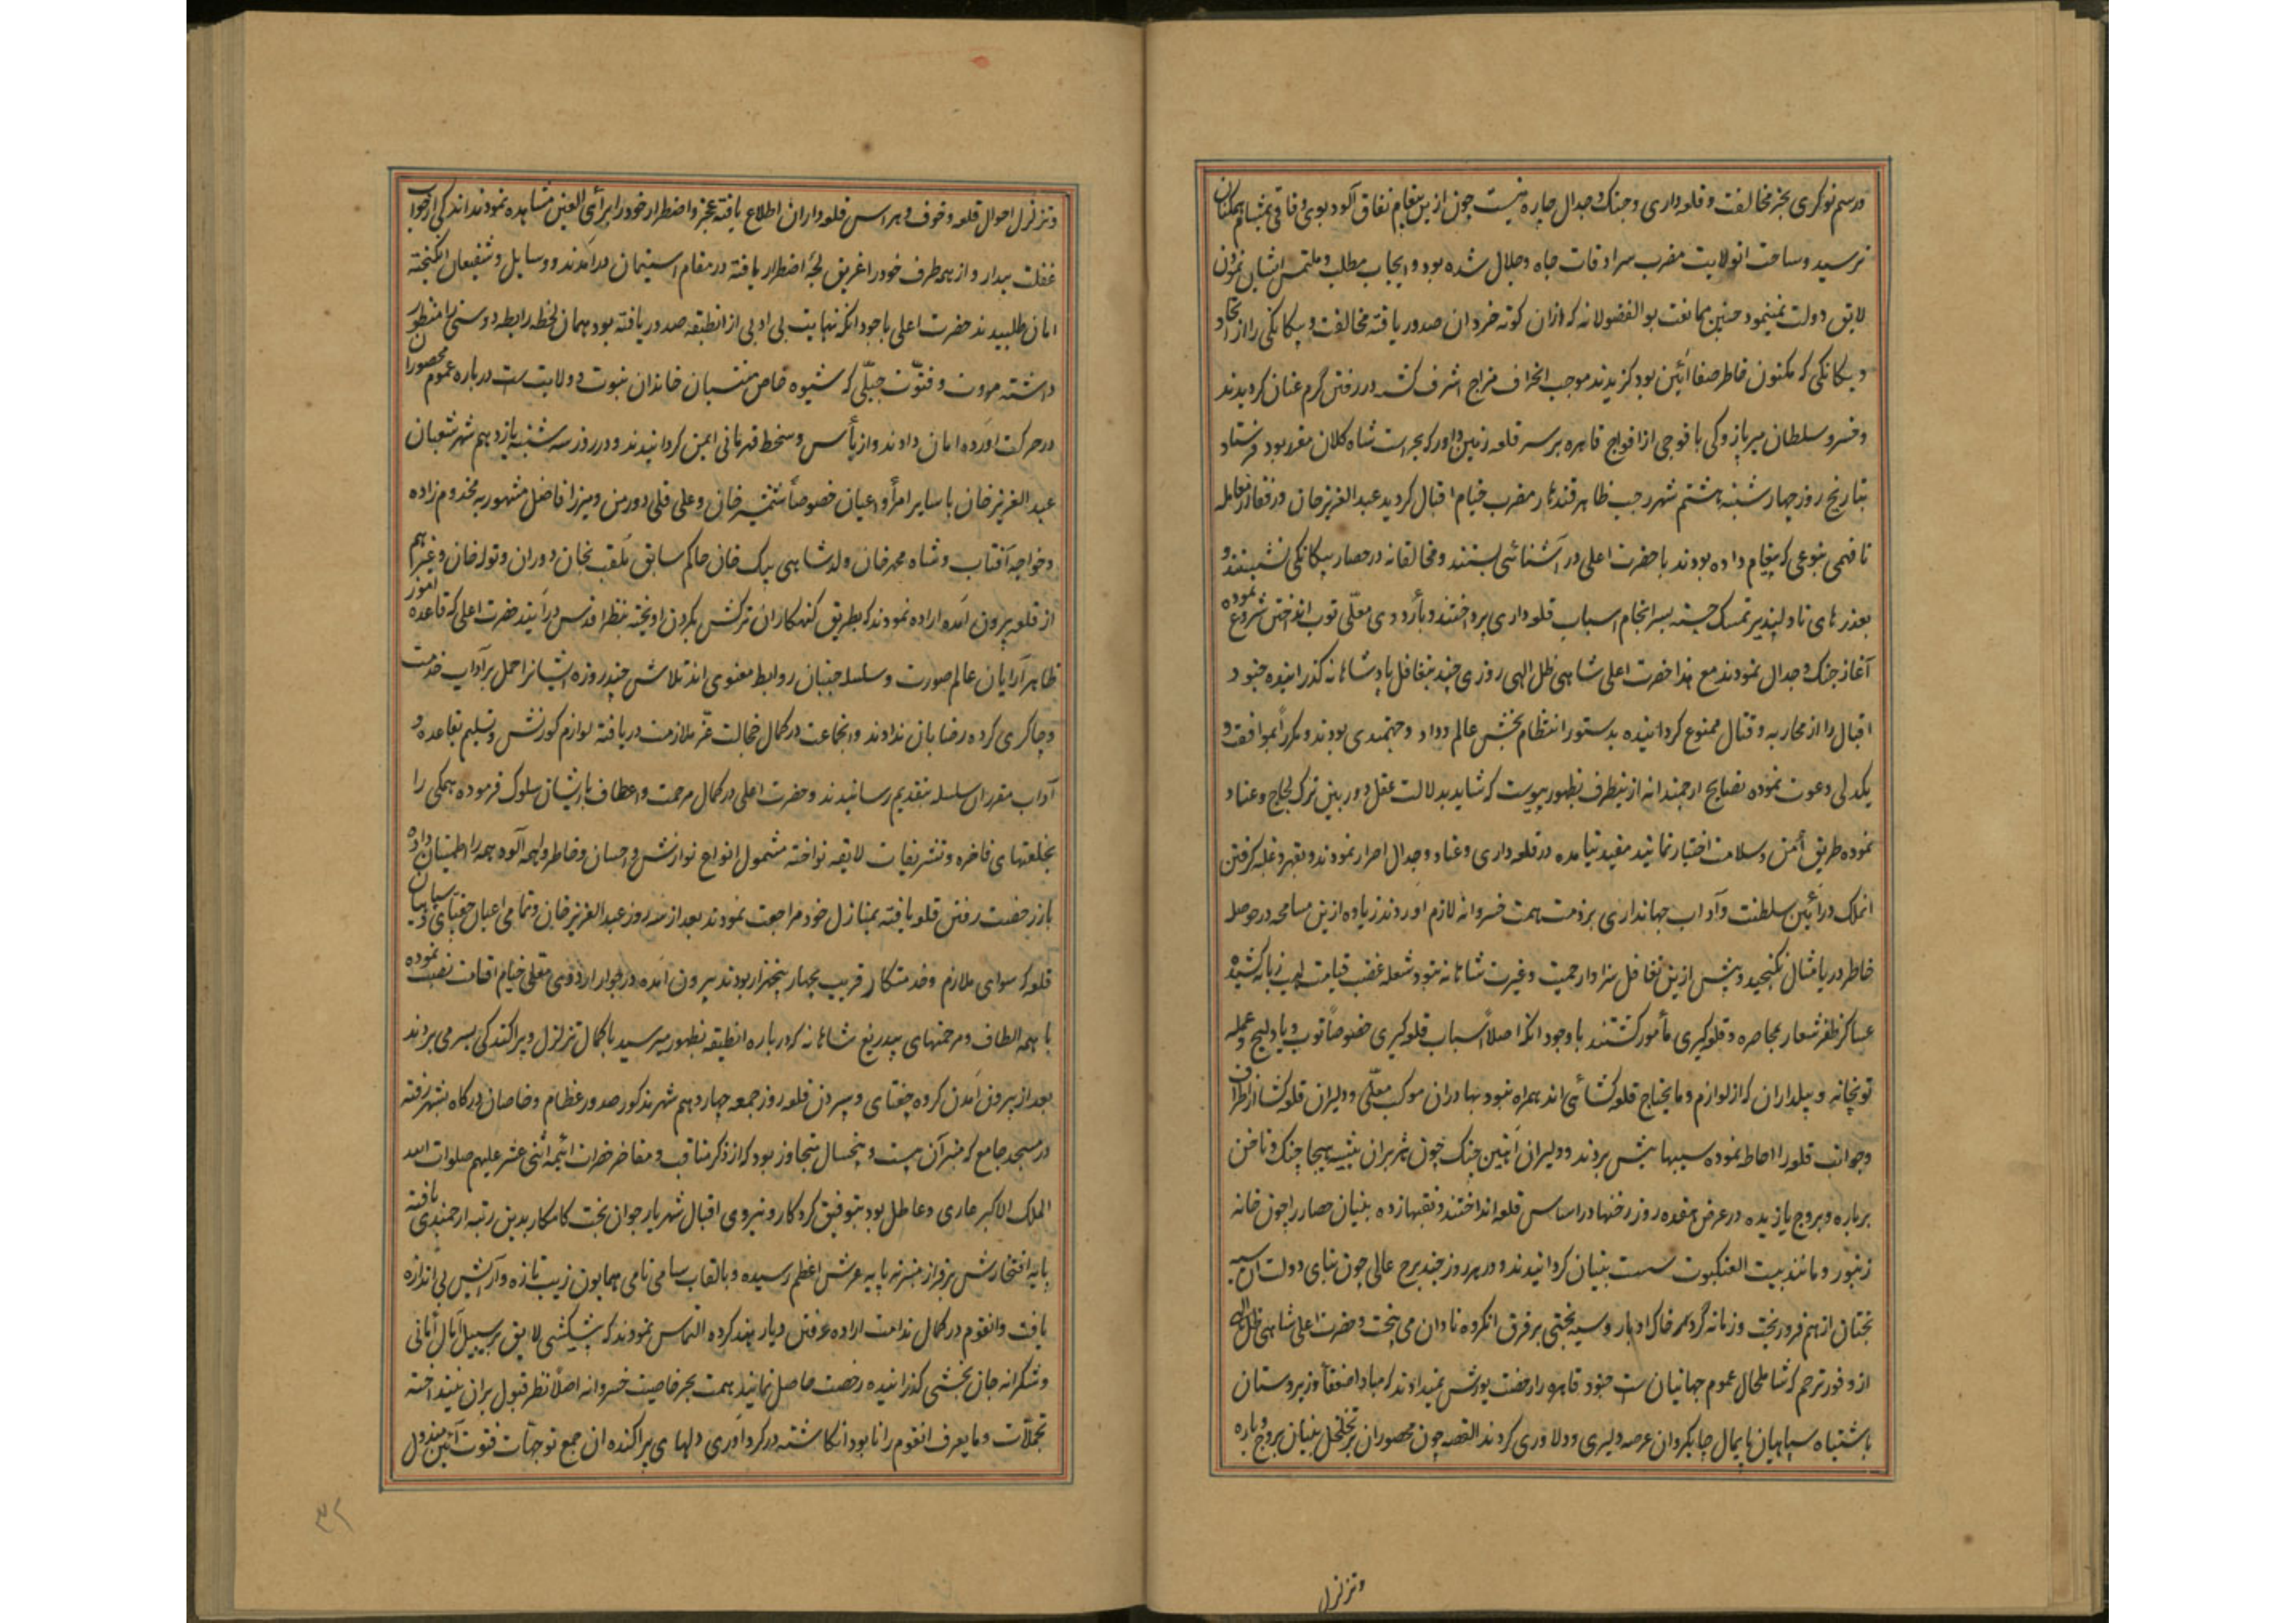 در رسم نوکری بجز مخالفت و قلعه داری و جنک و جدال چاره نیست چون ازین پیغام نفاق آلود بوی وفاقی بمشام همکنان
نرسید و ساحت انولایت مضرب سرادقات جاه و جلال شده بود و ایجاب مطلب و ملتمس ایشان نمودن
لایق دولت نمینمود چنین ممانعت بوالفضولانه که ازان کوته خردان صدور یافته مخالفت و بیکانکی را از اتحاد
و یکانکی که مکنون خاطر صفا آئین بود کزیدند موجب انحراف مزاج اشرف کشته در رفتن گرم عنان کردیدند
و خسرو سلطان را با فوجی از افواج قاهره بر سر قلعه زمین داور که بحراست شاه کلان مقرر بود فرستاد
بتاریخ روز چهارشنبه هشتم شهر رجب ظاهر قندهار مضرب خیام اقبال کردید عبدالعزیزخان و رفقا از معامله
نافهمی بنوعی که پیغام داده بودند با حضرت اعلی در آشنائی بستند و مخالفانه در حصار بیکانکی نشستند و
بعذرهای نادلپذیر تمسک جسته بسرانجام اسباب قلعه داری پرداختند و باردوی معلّی توپ انداختن شروع نموده
آغاز جنک و جدال نمودند مع هذا حضرت اعلی شاهی ظل الهی روزی چند بتغافل پادشاهانه کذرانیده جنود
اقبال را از محاربه و قتال ممنوع کردانیده بدستور انتظام بخش عالم و داد و جهتمندی بودند و مکرراً بموافقت و
یکدلی دعوت نموده نصایح ارجمندانه ازینطرف بظهور پیوست که شاید بدلالت عقل دوربین ترک لجاج و عناد
نموده طریق أمن و سلامت اختیار نمایند مفید نیامده در قلعه داری و عناد و جدال اصرار نمودند و بقهر و غلبه کرفتن
انملک در آئین سلطنت و آداب جهانداری بر ذمت همت خسروانه لازم اوردند زیاده ازین مسامحه در حوصله
خاطر دریا مثال نکنجید و بیش ازین تغافل سزاوار حمیت و غیرت شاهانه نبود شعله غضب قیامت لهب زبانه کشیده
عساکر ظفر شعار بمحاصره و قلعه کیری مأمور کشتند با وجود انکه اصلاً اسباب قلعه کیری خصوصاً توپ و بادلیج و عمله
توپخانه و بیلداران که از لوازم و مایحتاج قلعه کشائی اند همراه نبود بهادران موکب معلّی و دلیران قلعه کشا از اطراف
و جوانب قلعه را احاطه نموده سیبها پیش بردند و دلیران آئین جنک چون هژبران بیشه هیجا چنک و ناخن
بر باره و بروج یازیده در عرض هفده روز رخنها در اساس قلعه انداختند و نقبها زده بنیان حصار را چون خانه
زنبور و مانند بیت العنکبوت سست بنیان کردانیدند و در هر روز چند برج عالی چون بنای دولت ان سیه
بختان از هم فرو ریخت و زمانه گرد خاک ادبار و سیه بختی بر فرق انکروه نادان می بیخت و حضرت اعلی شاهی ظل الهی
از وفور ترحم که شامل حال عموم جهانیان ست جنود قاهره را رخصت یورش نمیدادند که مبادا ضعفا و زیردستان
باشتباه سپاهیان پایمال چابکروان عرصه دلیری و دلاوری کردند القصه چون محصوران بر تخلخل بنیان بروج و باره
وتزلزل
و تزلزل احوال قلعه و خوف و هراس قلعه داران اطلاع یافته عجز و اضطرار خود را برأی العین مشاهده نمودند اندکی از خواب
غفلت بیدار و از همه طرف خود را غریق لجّه اضطرار یافته در مقام استیمان درآمدند و وسایل و شفیعان انکیخته
امان طلبیدند حضرت اعلی باوجود انکه نهایت بی ادبی از انطبقه صدور یافته بود همان لحظه رابطه دوستی را منظور
داشته مروت و فتوّت جبلّی که شیوه خاص منتسبان خاندان نبوت و ولایت ست درباره عموم محصوران
در حرکت اورده امان دادند و از یأس و سخط قهرمانی ایمن کردانیدند و در روز سه شنبه یازدهم شهر شعبان
عبدالعزیزخان با سایر امرأ و اعیان خصوصاً خان و علی قلی دورمن و میرزا فاضل مشهور به مخدوم زاده
و خواجه آفتاب و شاه محمدخان ولد شاهی بیک خان حاکم سابق ملقب بخان دوران و تولخان و غیرهم
از قلعه بیرون آمده اراده نمودند که بطریق کنهکاران ترکش بکردن اویخته بنظر اقدس درآیند حضرت اعلی که قاعده آموز
ظاهر آرایان عالم صورت و سلسله جنبان روابط معنوی اند تلاش چند روزه ایشانرا حمل بر آداب خدمت
و چاکری کرده رضا بان ندادند و انجماعت در کمال خجالت عزّ ملازمت دریافته لوازم کورنش و تسلیم بقاعده و
آداب مقرر ان سلسله بتقدیم رسانیدند و حضرت اعلی در کمال مرحمت و اعطاف با ایشان سلوک فرموده همکی را
بخلعتهای فاخره و تشریفات لایقه نواخته مشمول انواع نوازش و احسان و خاطر واهمه آلود همه را اطمینان داده
باز رخصت رفتن قلعه یافته بمنازل خود مراجعت نمودند بعد از سه روز عبدالعزیزخان و تمامی اعیان جغتای و سپاهیان
قلعه که سوای ملازم و خدمتکار قریب بچهار پنجهزار بودند بیرون آمده در جوار اردوی معلی خیام اقامت نصب نموده
با همه الطاف و مرحمتهای بیدریغ شاهانه که درباره انطبقه بظهور میرسید با کمال تزلزل و پراکندکی بسر می بردند
بعد از بیرون آمدن کروه جغتای و سپردن قلعه روز جمعه چهاردهم شهر مذکور صدور عظام و خاصان درکاه بشهر رفته
در مسجد جامع که منبر آن بیست و پنجسال متجاوز بود که از ذکر مناقب و مفاخر حضرات ائیمه اثنی عشر علیهم صلوات الله
الملک الاکبر عاری و عاطل بود بتوفیق کردکار و نیروی اقبال شهریار جوان بخت کامکار بدین رتبه ارجمندی یافته
پایه افتخارش بر فراز منبر نه پایه عرش اعظم رسیده و بالقاب سامی نامی همایون زیب تازه و آرایش بی اندازه
یافت و انقوم در کمال ندامت اراده رفتن دیار هند کرده التماس نمودند که پیشکشی لایق بر سبیل امانی
و شکرانه جان بخشی کذرانیده رخصت حاصل نمایند همت بحر خاصیت خسروانه اصلاً نظر قبول بران نینداخته
تجملّات و مایعرف انقوم را نابود انکاشته در کرداوری دلهای پراکنده ان جمع توجهات فتوت آئین مبذول
۳۲